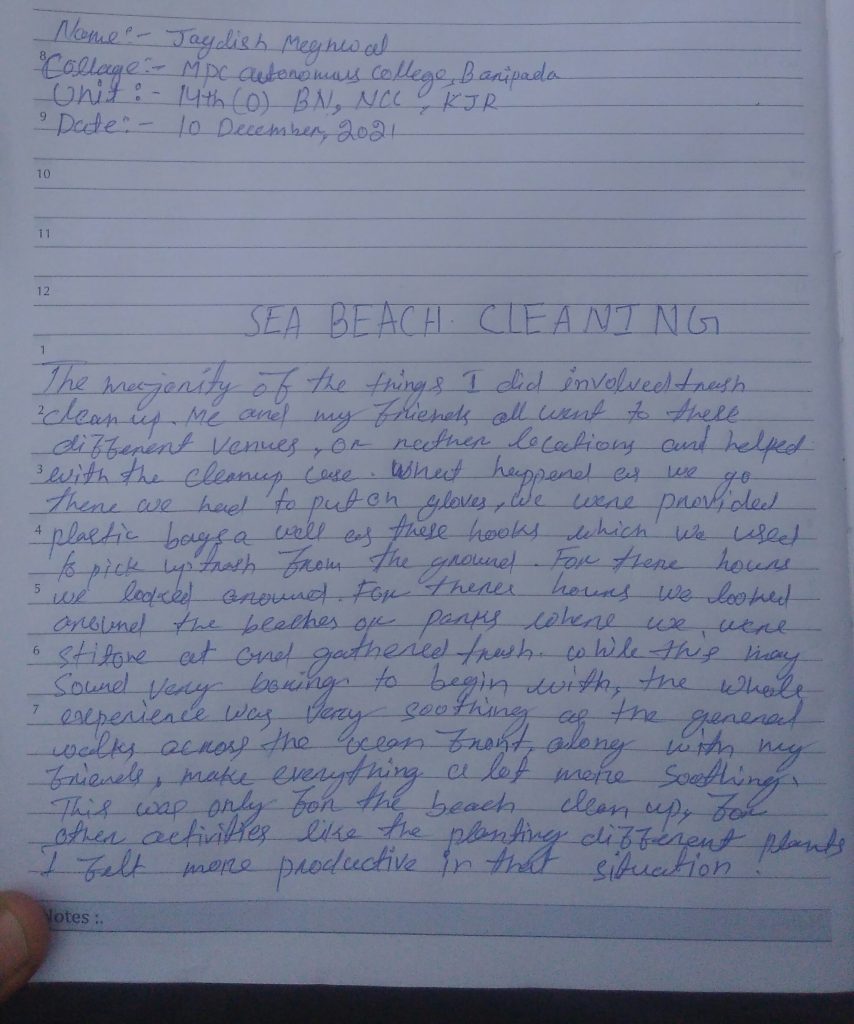 Name :- Jaydish Meghwal
8
Collage :- MPC autonomus college, Baripada
Unit :- 14th (O) BN, NCC, KJR
9
Date :- 10 December, 2021
10
11
12
SEA BEACH CLEANING
1
The majority of the things I did involved trash
2 clean up. Me and my friends all went to these
different venues, or rather locations and helped
3 with the cleanup case. What happend as we go
there we had to put on gloves, we were provided
4 plastic bags a well as these hooks which we used
to pick up trash from the ground. For there hours
5 we looked around. For theres hours we looked
around the beaches or parks where we were
6 at and gathered trash. While this may
Sound very boring to begin with, the whole
7 experience was very soothing as the general
walks across the ocean front, along with my
friends, make everything a lot more Soothing.
This was only for the beach clean up, for
other activities like the planting different plants
I felt more productive in that situation.
Notes :.